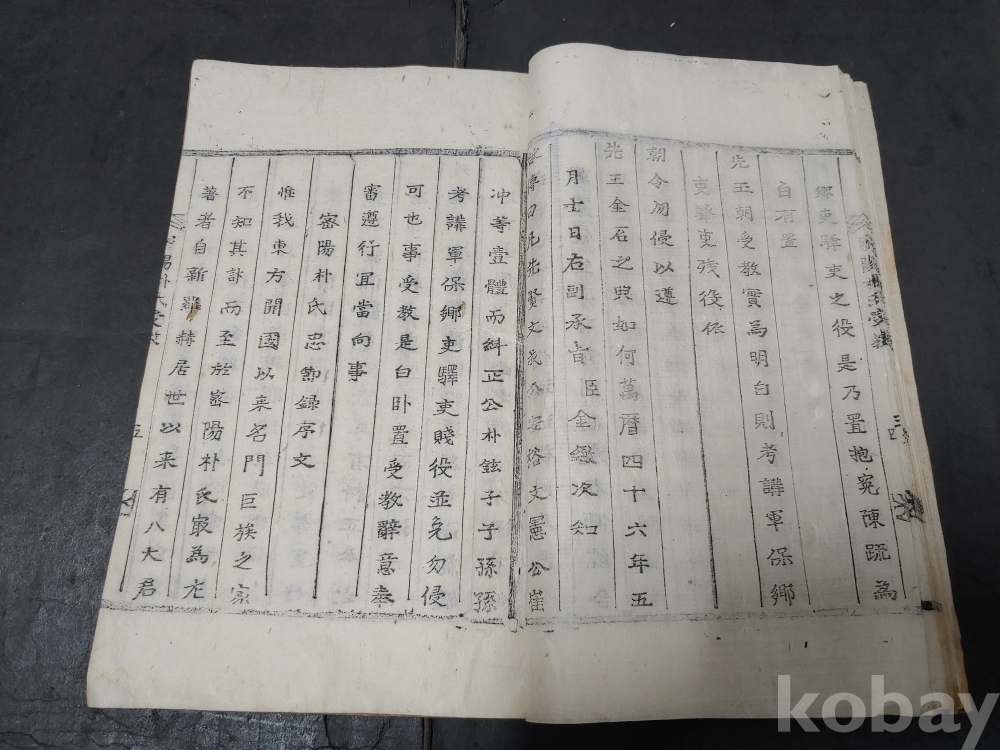 鄕吏驛吏之役是乃置抱寃陳䟽為
白有置
先王朝受教實為明白則考講軍保鄕
吏驛吏殘役依
朝令勿侵以遵
先王金石之典如何萬曆四十六年五
月士日右副承旨臣金緻次知
教曰凡先賢文成公安裕文憲公崔
冲等壹體而糾正公朴鉉子子孫孫
考講軍保鄕吏驛吏賤役並免勿侵
可也事受教是白卧置受教辭意奉
審遵行宜當向事
密陽朴氏忠節録序文
惟我東方開國以来名門巨族之家
不知其計而至於密陽朴氏㝡為尤
著者自新羅赫居世以来有八大君
陽朴氏受教
五
kobay